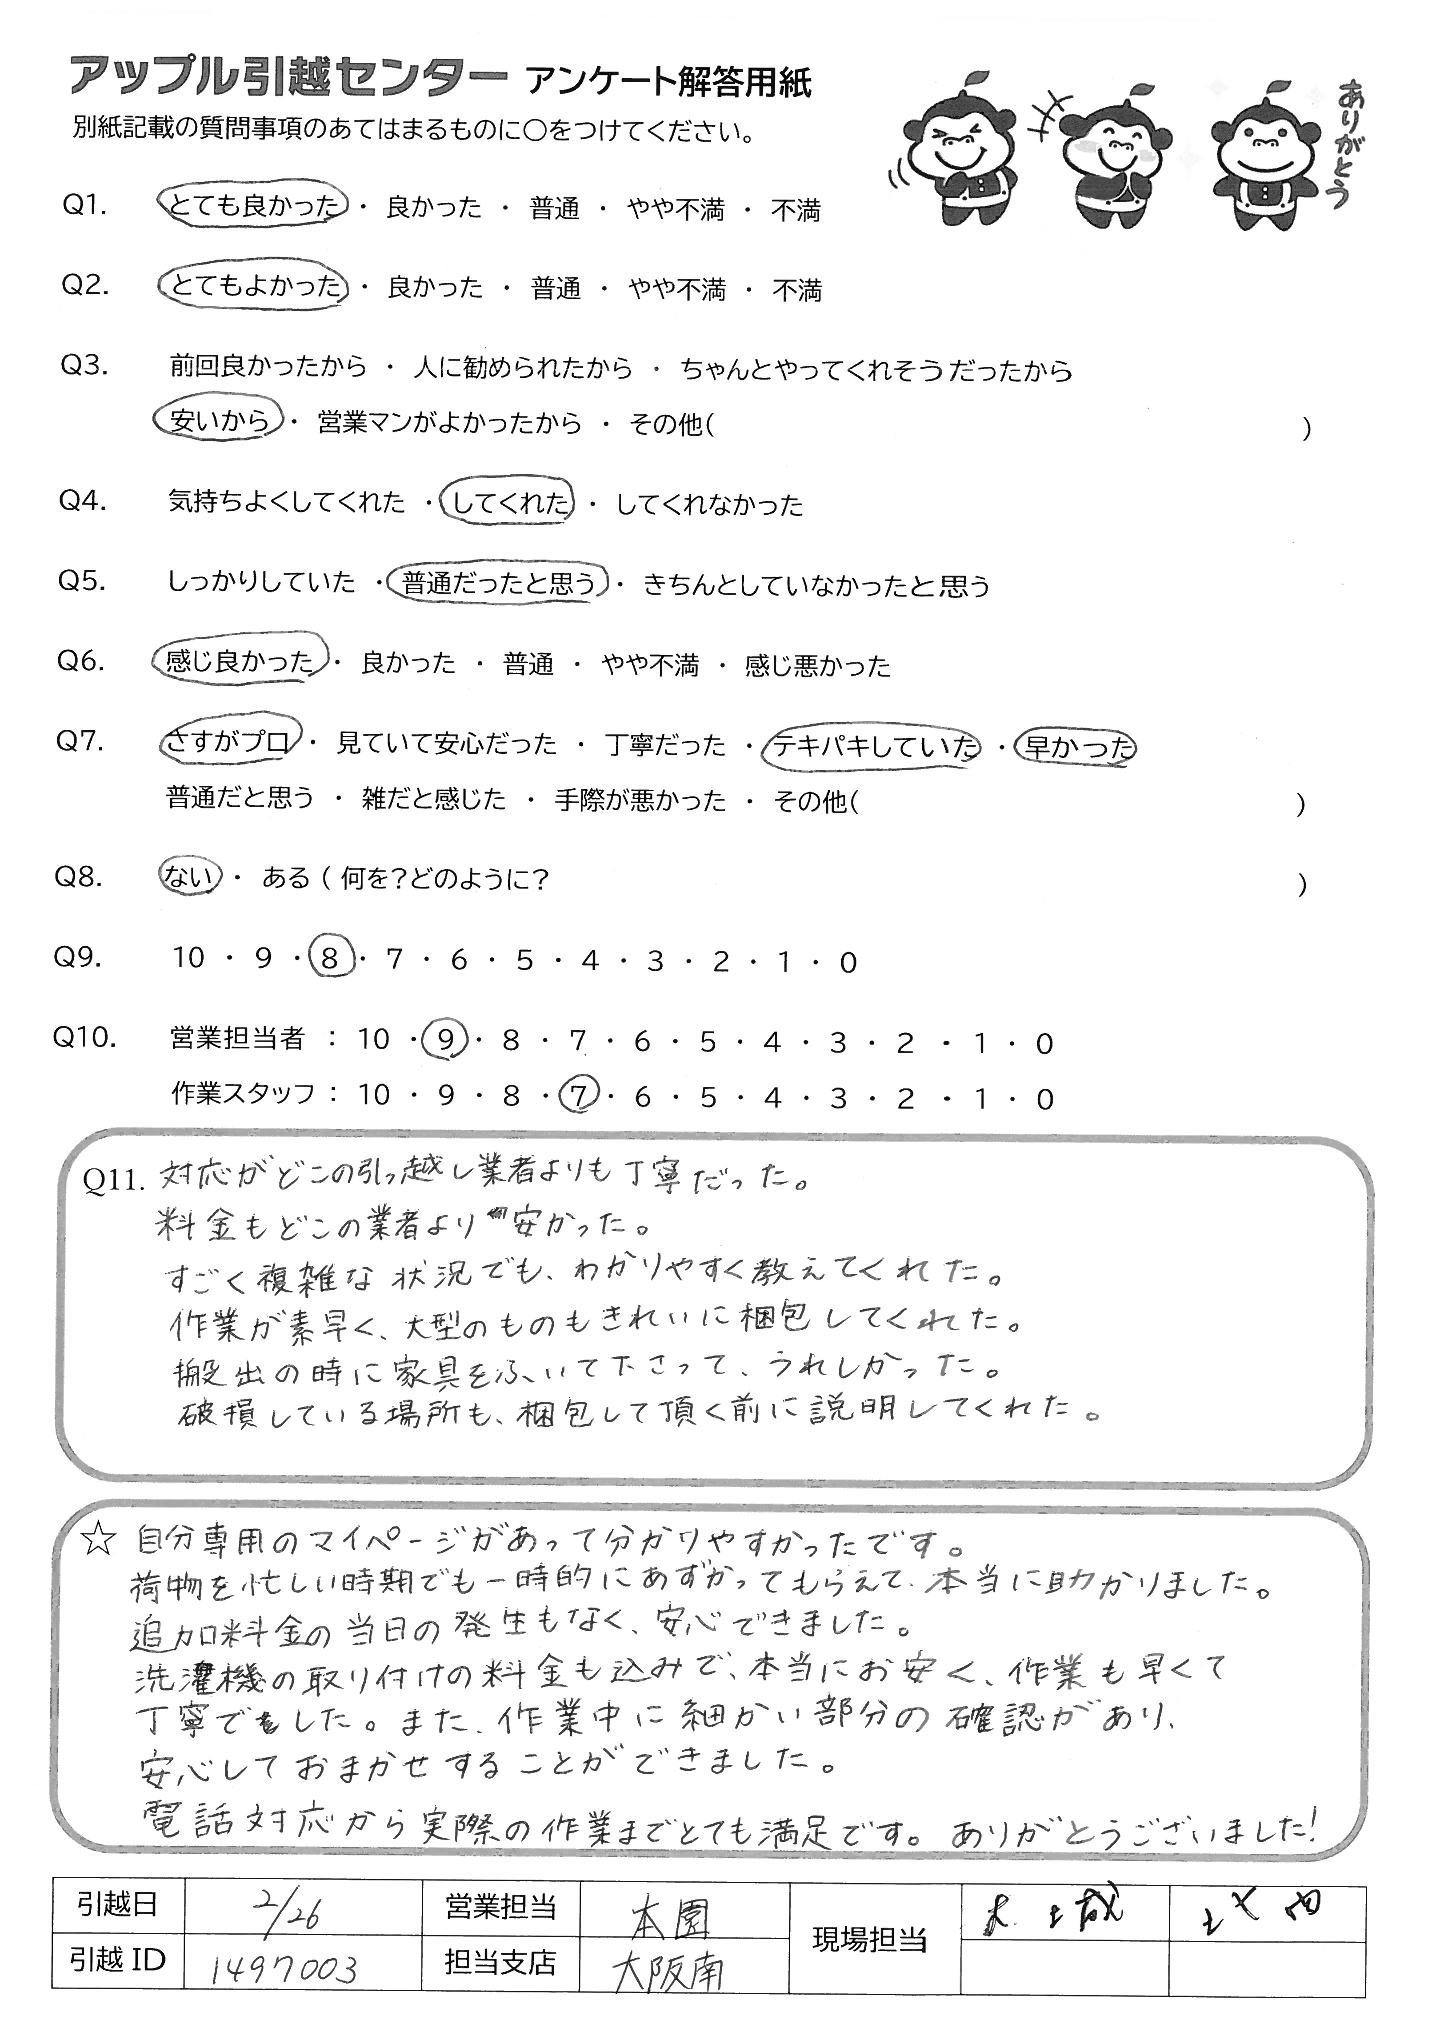 アップル引越センター アンケート解答用紙
別紙記載の質問事項のあてはまるものに○をつけてください。
ありがとう
Q1. とても良かった ・ 良かった ・ 普通 ・ やや不満 ・ 不満
Q2. とてもよかった ・ 良かった ・ 普通 ・ やや不満 ・ 不満
Q3. 前回良かったから ・ 人に勧められたから ・ ちゃんとやってくれそうだったから
安いから ・ 営業マンがよかったから ・ その他( )
Q4. 気持ちよくしてくれた ・ してくれた ・ してくれなかった
Q5. しっかりしていた ・ 普通だったと思う ・ きちんとしていなかったと思う
Q6. 感じ良かった ・ 良かった ・ 普通 ・ やや不満 ・ 感じ悪かった
Q7. さすがプロ ・ 見ていて安心だった ・ 丁寧だった ・ テキパキしていた ・ 早かった
普通だと思う ・ 雑だと感じた ・ 手際が悪かった ・ その他( )
Q8. ない ・ ある ( 何を?どのように? )
Q9. 10 ・ 9 ・ 8 ・ 7 ・ 6 ・ 5 ・ 4 ・ 3 ・ 2 ・ 1 ・ 0
Q10. 営業担当者 : 10 ・ 9 ・ 8 ・ 7 ・ 6 ・ 5 ・ 4 ・ 3 ・ 2 ・ 1 ・ 0
作業スタッフ : 10 ・ 9 ・ 8 ・ 7 ・ 6 ・ 5 ・ 4 ・ 3 ・ 2 ・ 1 ・ 0
Q11. 対応がどこの引っ越し業者よりも丁寧だった。
料金もどこの業者より安かった。
すごく複雑な状況でも、わかりやすく教えてくれた。
作業が素早く、大型のものもきれいに梱包してくれた。
搬出の時に家具をふいて下さって、うれしかった。
破損している場所も、梱包して頂く前に説明してくれた。
☆ 自分専用のマイページがあって分かりやすかったです。
荷物を忙しい時期でも一時的にあずかってもらえて、本当に助かりました。
追加料金の当日の発生もなく、安心できました。
洗濯機の取り付けの料金も込みで、本当にお安く、作業も早くて
丁寧でした。また、作業中に細かい部分の確認があり、
安心しておまかせすることができました。
電話対応から実際の作業までとても満足です。ありがとうございました!
引越日 2/26 営業担当 本園 現場担当
引越ID 1497003 担当支店 大阪南